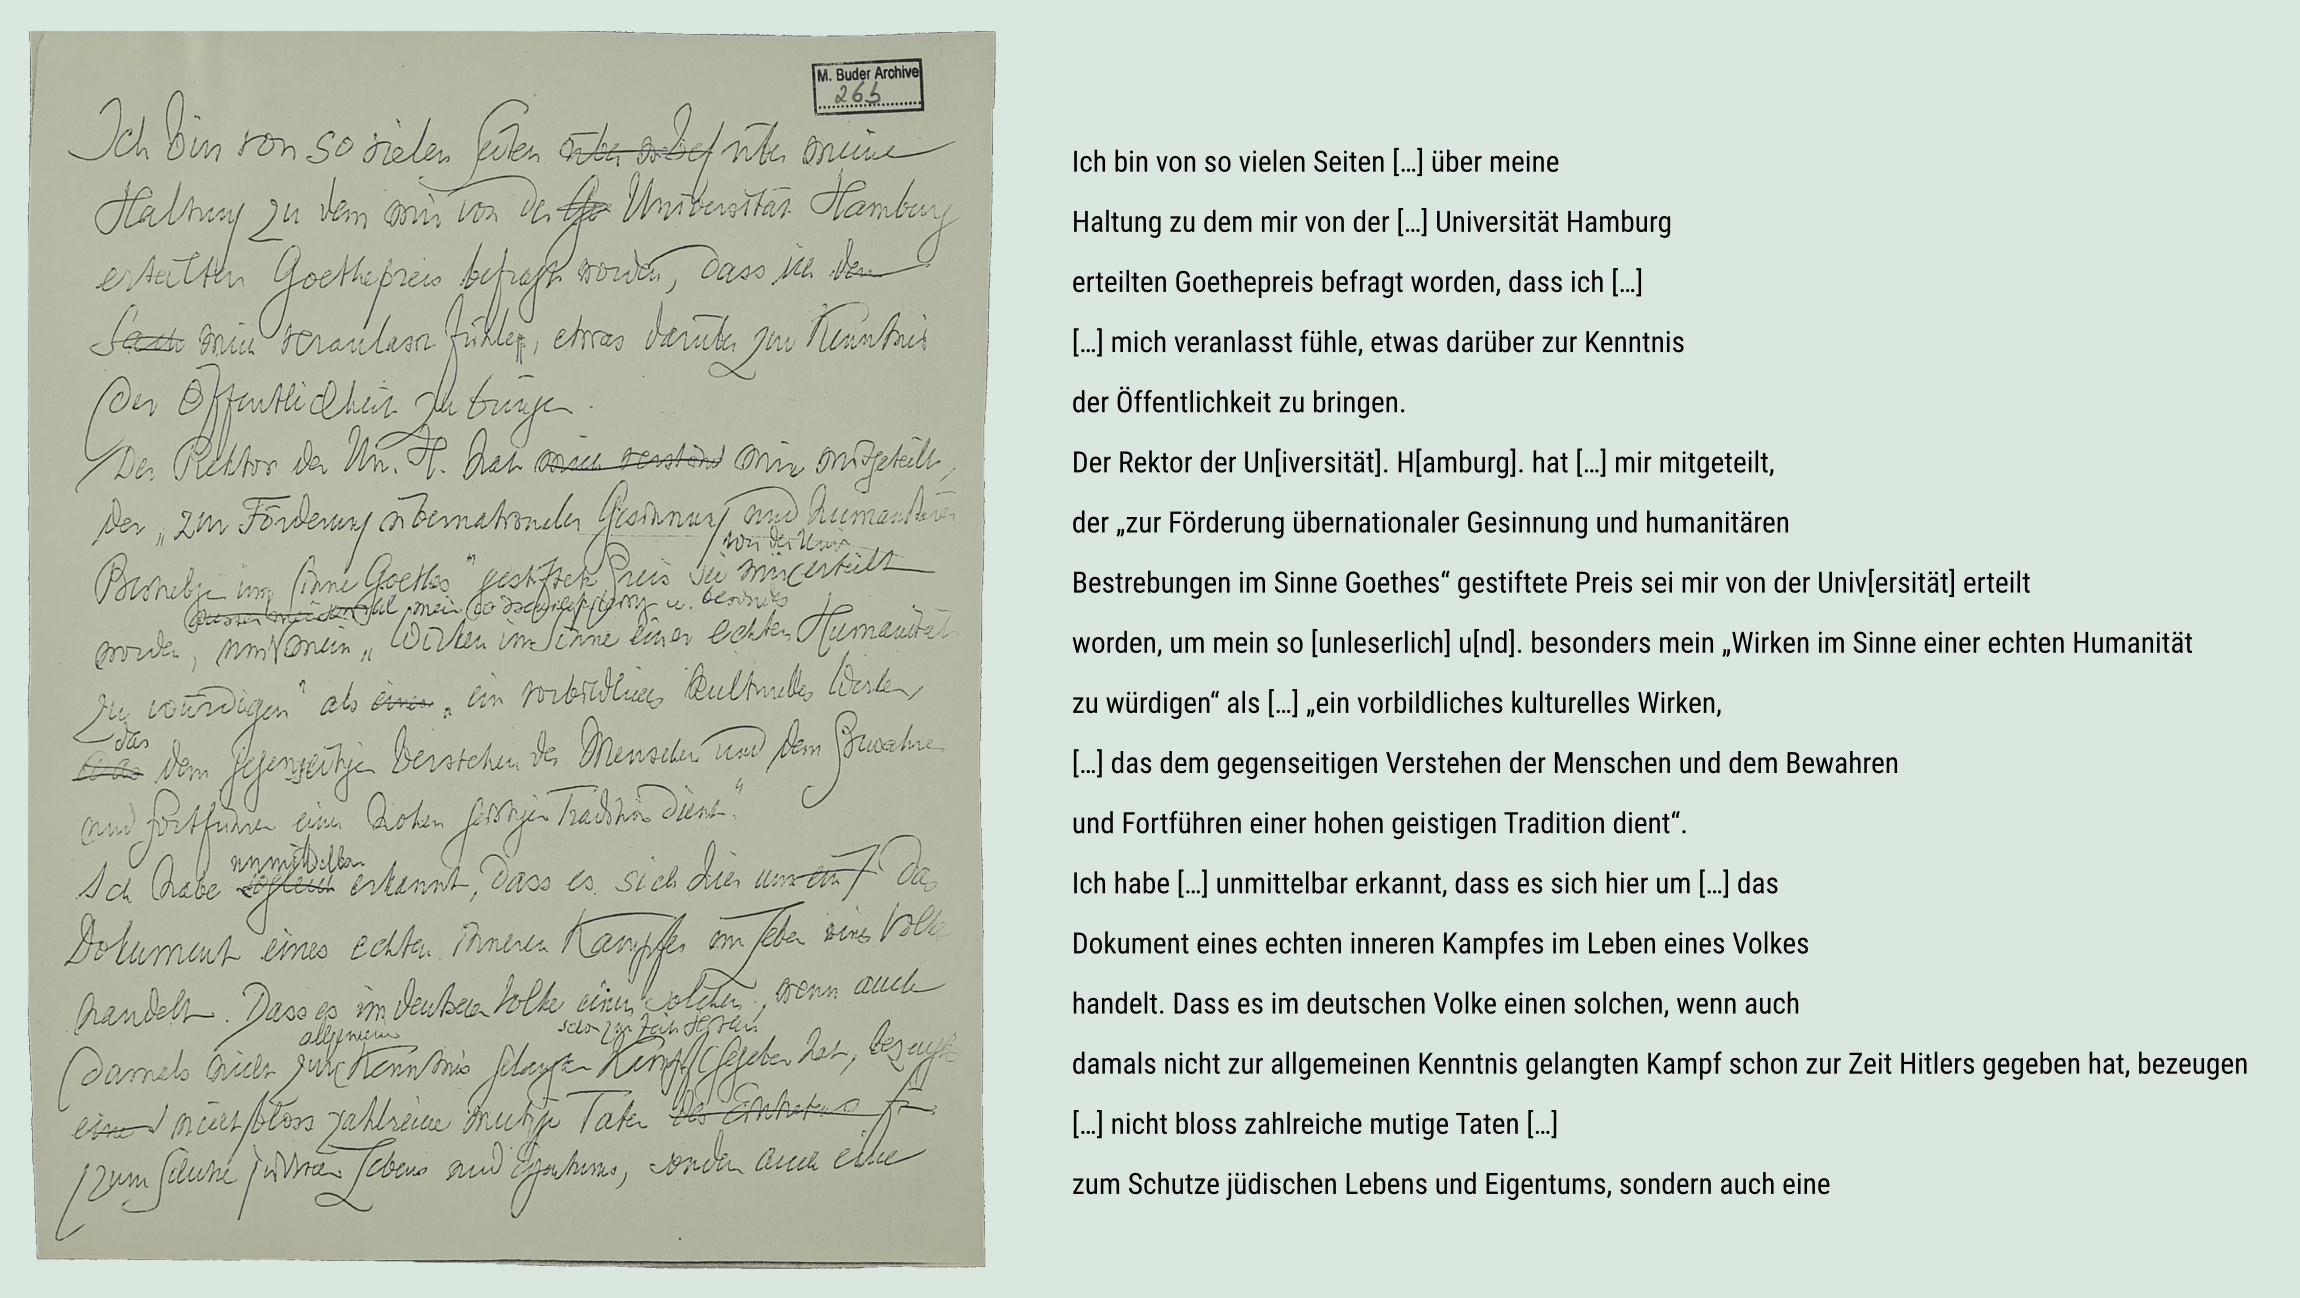 M. Buder Archive
265
Ich bin von so vielen Seiten über meine
Haltung zu dem mir von der Universität Hamburg
erteilten Goethepreis befragt worden, dass ich den
mich veranlasst fühle, etwas darüber zur Kenntnis
der Öffentlichkeit zu bringen.
Der Rektor der Un. H. hat mir mitgeteilt,
der „zur Förderung übernationaler Gesinnung und humanitären
von der Univ
Bestrebungen im Sinne Goethes“ gestiftete Preis sei mir erteilt
mein so u. besonders
worden, um mein „Wirken im Sinne einer echten Humanität
zu würdigen“ als „ein vorbildliches kulturelles Wirken,
das
dem gegenseitigen Verstehen der Menschen und dem Bewahren
und Fortführen einer hohen geistigen Tradition dient“.
unmittelbar
Ich habe sogleich erkannt, dass es sich hier um ein das
Dokument eines echten inneren Kampfes im Leben eines Volkes
handelt. Dass es im deutschen Volke einen solchen, wenn auch
allgemeinen schon zur Zeit Hitlers
damals nicht zur Kenntnis gelangten Kampf gegeben hat, bezeugen
nicht bloss zahlreiche mutige Taten
zum Schutze jüdischen Lebens und Eigentums, sondern auch eine
Ich bin von so vielen Seiten [...] über meine
Haltung zu dem mir von der [...] Universität Hamburg
erteilten Goethepreis befragt worden, dass ich [...]
[...] mich veranlasst fühle, etwas darüber zur Kenntnis
der Öffentlichkeit zu bringen.
Der Rektor der Un[iversität]. H[amburg]. hat [...] mir mitgeteilt,
der „zur Förderung übernationaler Gesinnung und humanitären
Bestrebungen im Sinne Goethes“ gestiftete Preis sei mir von der Univ[ersität] erteilt
worden, um mein so [unleserlich] u[nd]. besonders mein „Wirken im Sinne einer echten Humanität
zu würdigen“ als [...] „ein vorbildliches kulturelles Wirken,
[...] das dem gegenseitigen Verstehen der Menschen und dem Bewahren
und Fortführen einer hohen geistigen Tradition dient“.
Ich habe [...] unmittelbar erkannt, dass es sich hier um [...] das
Dokument eines echten inneren Kampfes im Leben eines Volkes
handelt. Dass es im deutschen Volke einen solchen, wenn auch
damals nicht zur allgemeinen Kenntnis gelangten Kampf schon zur Zeit Hitlers gegeben hat, bezeugen
[...] nicht bloss zahlreiche mutige Taten [...]
zum Schutze jüdischen Lebens und Eigentums, sondern auch eine